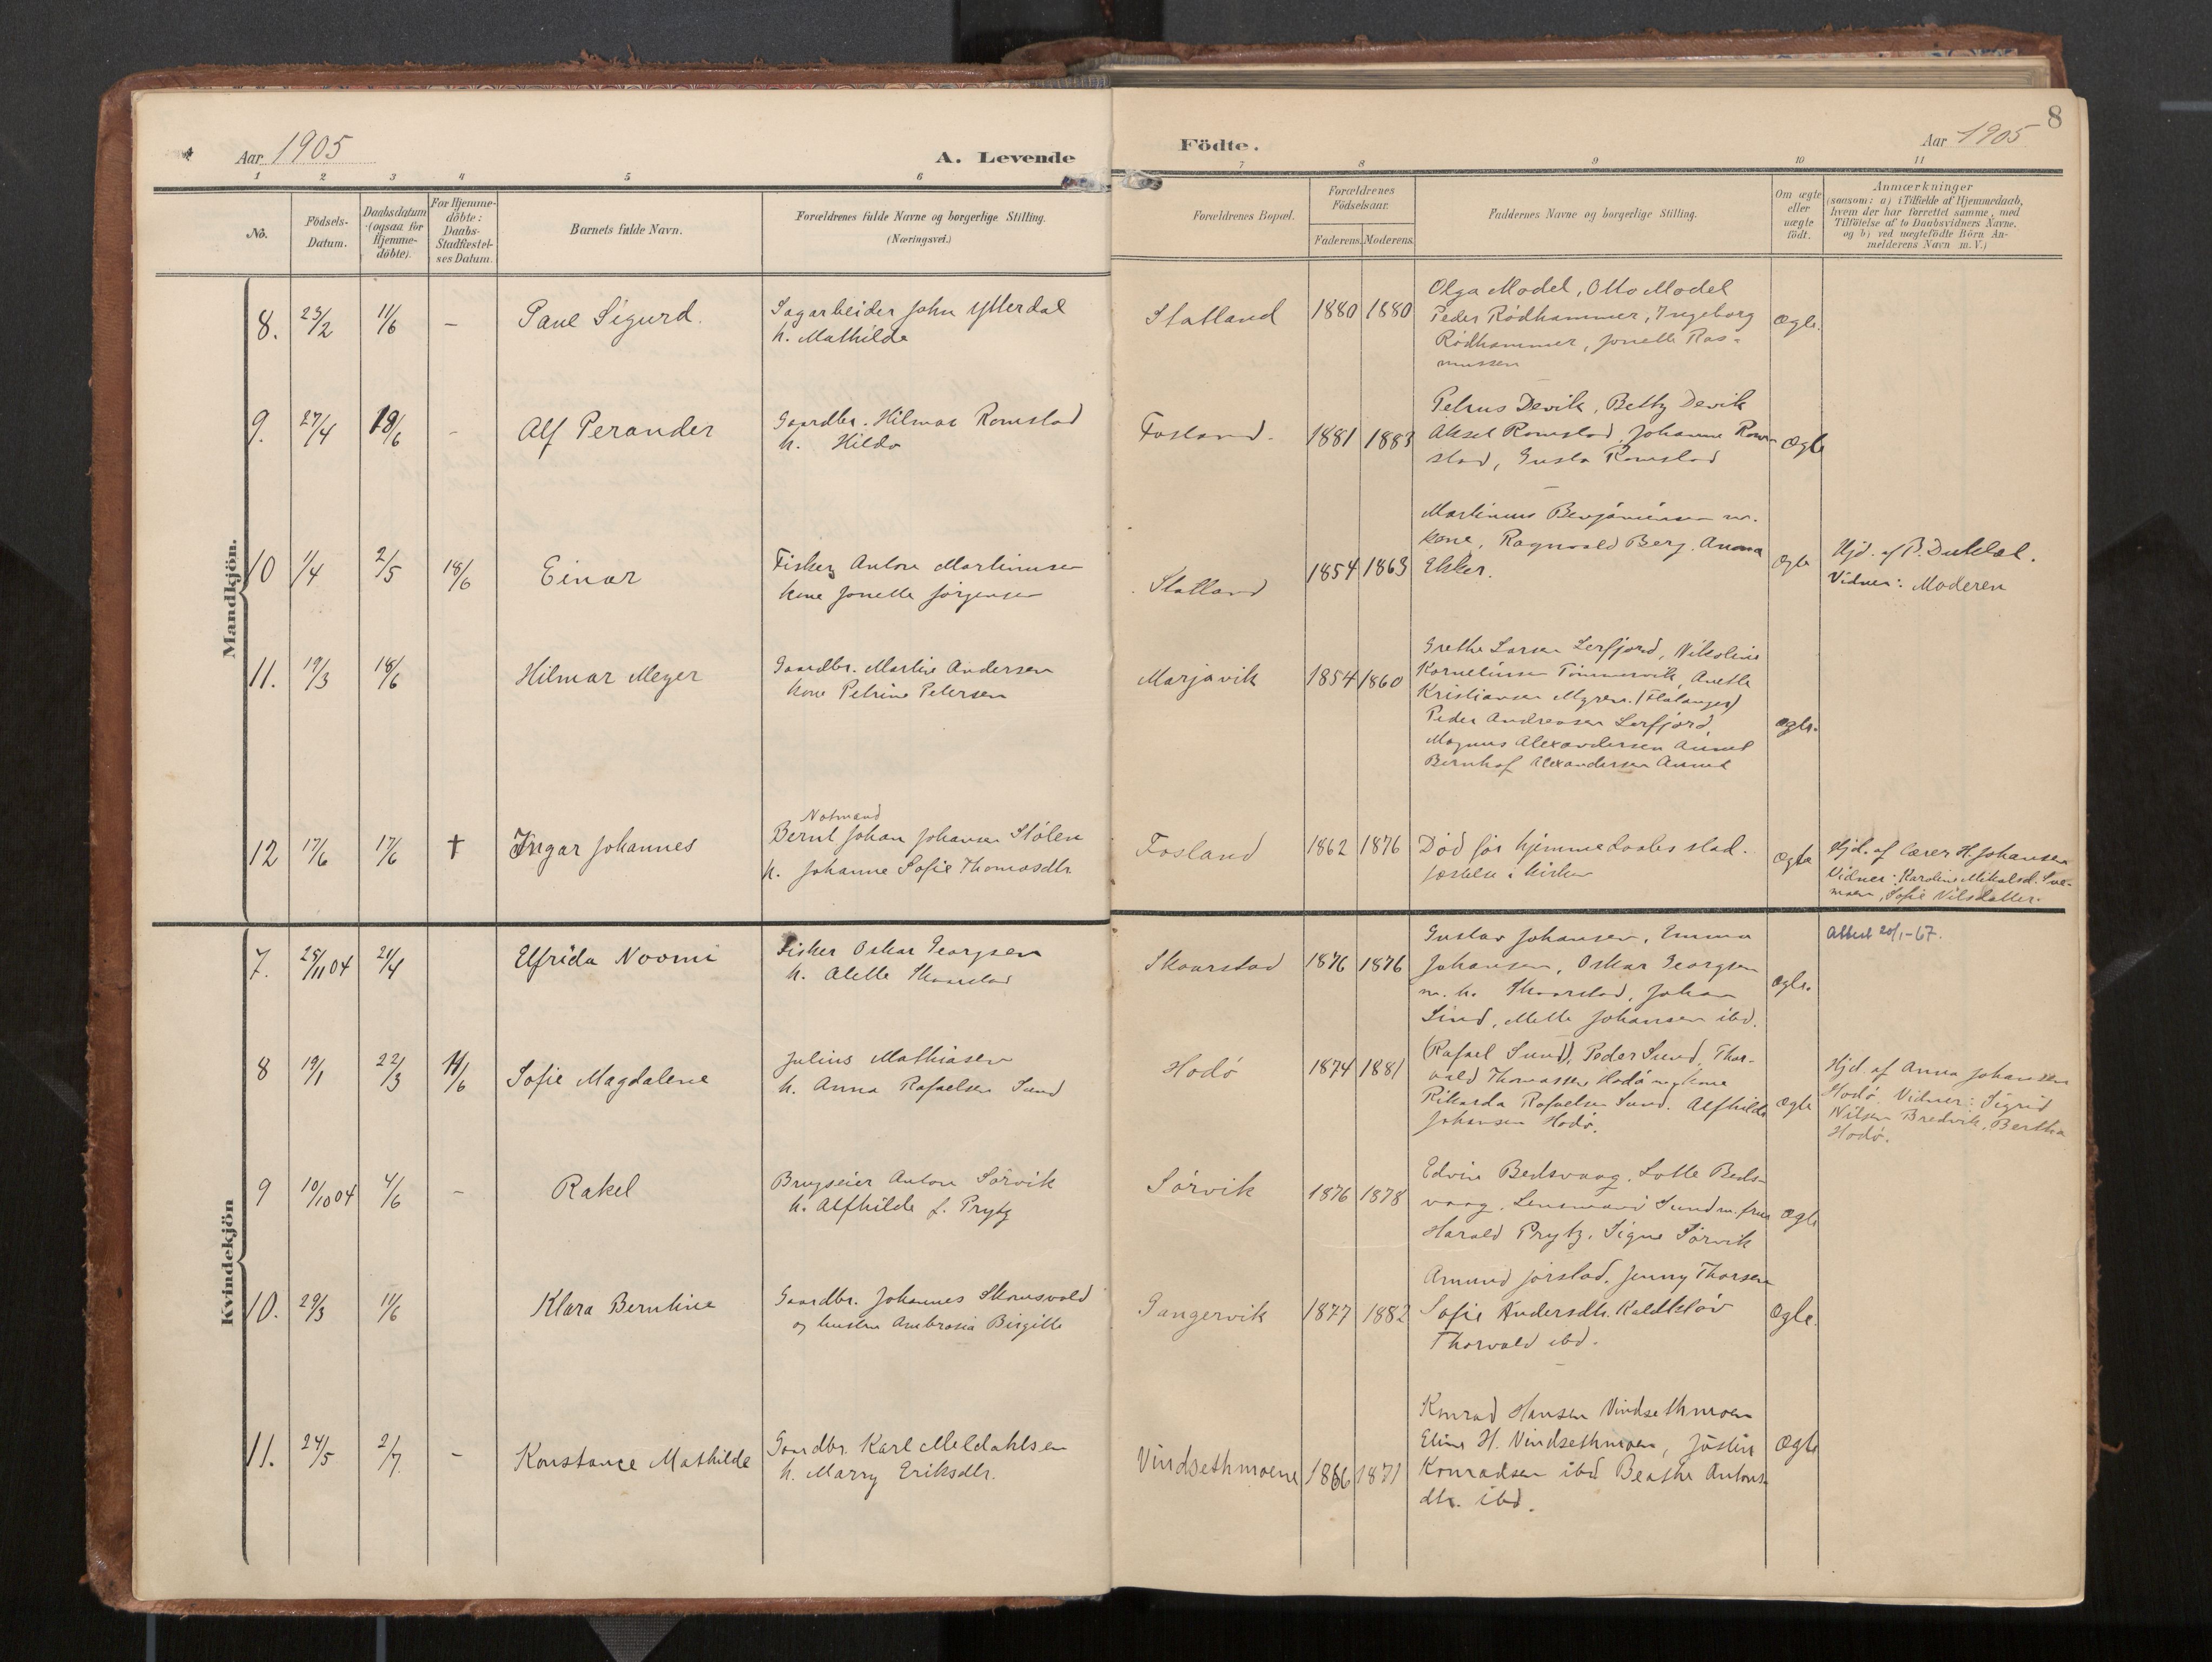 8
Aar 1905
A. Levende
Födte.
Aar 1905
1 2 3 4 5 6 7 8 9 10 11
No.
Födsels-
Datum.
Daabsdatum
(ogsaa for
Hjemme-
döbte).
For Hjemme-
döbte:
Daabs-
Stadfæstel-
ses Datum.
Barnets fulde Navn.
Forældrenes fulde Navne og borgerlige Stilling.
(Næringsvei.)
Forældrenes Bopæl.
Forældrenes
Födselsaar.
Faderens. Moderens.
Faddernes Navne og borgerlige Stilling.
Om ægte
eller
uægte
födt.
Anmærkninger
(saasom: a) i Tilfælde af Hjemmedaab,
hvem der har forrettet samme, med
Tilföielse af to Daabsvidners Navne.
og b) ved uægtefödte Börn An-
melderens Navn m. V.)
Mandkjön.
8. 23/2 11/6 – Paul Sigurd.
Sagarbeider John Ytterdal
h. Mathilde
Statland 1880 1880
Olga Model, Otto Model
Peder Rödhammer, Ingeborg
Rödhammer, Jonette Ras-
mussen
Ægte.
9. 27/4 18/6 – Alf Perander
Gaardbr. Hilmar Romstad
h. Hilda
Fosland. 1881 1883
Petrus Devik, Betty Devik
Aksel Romstad, Johanne Rom-
stad, Gusta Romstad
Ægte
10 1/4 2/5 18/6 Einar
Fisker Anton Martinusen
kone Jonette Jörgensen
Statland 1854 1863
Martinus Benjaminsen m.
kone, Ragnvald Berg. Anna
Ekker.
Ægte
Hjd. af P. Duklæt.
Vidner: Moderen
11. 19/3 18/6 Hilmar Meyer
Gaardbr. Martin Andersen
kone Petrine Petersen
Marjavik 1854 1860
Grethe Larsen Lerfjord, Nikoline
Korneliussen Timmervik, Anette
Kristiansen Myren. (Flatanger)
Peder Andreasen Lerfjord,
Magnus Alexandersen Aunet
Bernhof Alexandersen Aunet
Ægte.
12 17/6 17/6 † Ingar Johannes
Notmand
Bernt Johan Johansen Stölen
h. Johanne Sofie Thomasdtr
Fosland 1862 1876
Död för hjemmedaabs stad-
fæstelse i kirken
Ægte
Hjd. af Lærer H. Johansen
Vidner: Karoline Mikalsd. Sve-
moen, Sofie Nilsdatter.
Kvindekjön
7. 25/11 04 21/4 Elfrida Noomi
Fisker Oskar Georgsen
h. Alette Skaarstad
Skaarstad 1876 1876
Gustav Johansen, Emma
Johansen, Oskar Georgsen
m. h. Skaarstad, Johan
Sund, Mette Johansen ibd.
Ægte.
Attest 20/1-67.
8 19/1 22/3 11/6 Sofie Magdalene
Julius Mathiasen
h. Anna Rafaelsen Sund
Hodö 1874 1881
(Rafael Sund), Peder Sund, Thor-
vald Thomassen Hodö og kone
Rikarda Rafaelsen Sund. Alfhilda
Johansen Hodö.
Ægte
Hjd. af Anna Johansen
Hodö. Vidner: Sigrid
Nilsen Bredvik, Bertha
Hodö.
9 10/10 04 4/6 – Rakel
Brugseier Anton Sörvik
h. Alfhilde f. Prytz
Sörvik 1876 1878
Edvin Bedsvaag, Lotte Beds-
vaag. Lensmand Sund m. frue
Harald Prytz. Signe Sörvik
Ægte
10. 29/3 11/6 Klara Berntine
Gaardbr. Johannes Skomsvold
og hustru Ambrosia Birgitte
Gangervik 1877 1882
Amund Jörstad, Jenny Thorsen
Sofie Andersdtr. Kaldklöv
Thorvald ibd.
Ægte.
11. 24/5 2/7 – Konstance Mathilde
Gaardbr. Karl Meldahlsen
h. Marry Eriksdtr.
Vindsethmoene 1866 1871
Konrad Hansen Vindsethmoen
Eline H. Vindsethmoen, Jöstin
Konradsen ibd Beathe Antons-
dtr. ibd.
Ægte